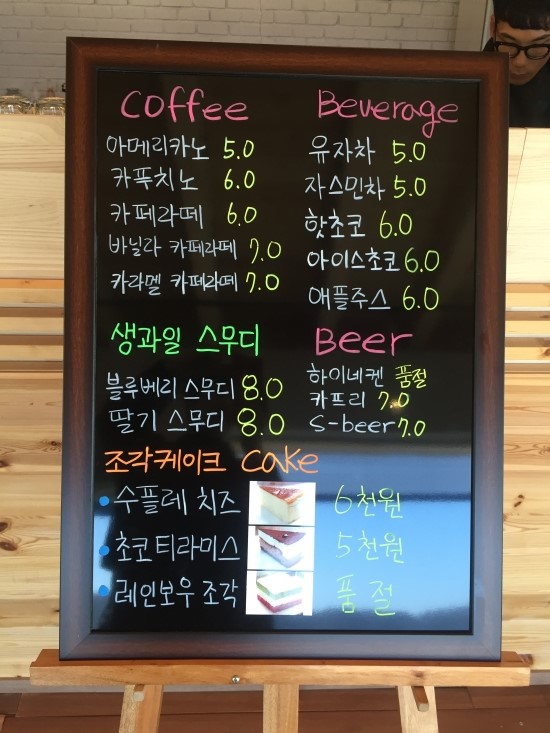 Coffee
아메리카노 5.0
카푹치노 6.0
카페라떼 6.0
바닐라 카페라떼 7.0
카라멜 카페라떼 7.0
Beverage
유자차 5.0
자스민차 5.0
핫초코 6.0
아이스초코 6.0
애플주스 6.0
생과일 스무디
블루베리 스무디 8.0
딸기 스무디 8.0
Beer
하이네켄 품절
카프리 7.0
S-beer 7.0
조각케이크 Cake
수플레 치즈 6천원
초코티라미스 5천원
레인보우 조각 품절